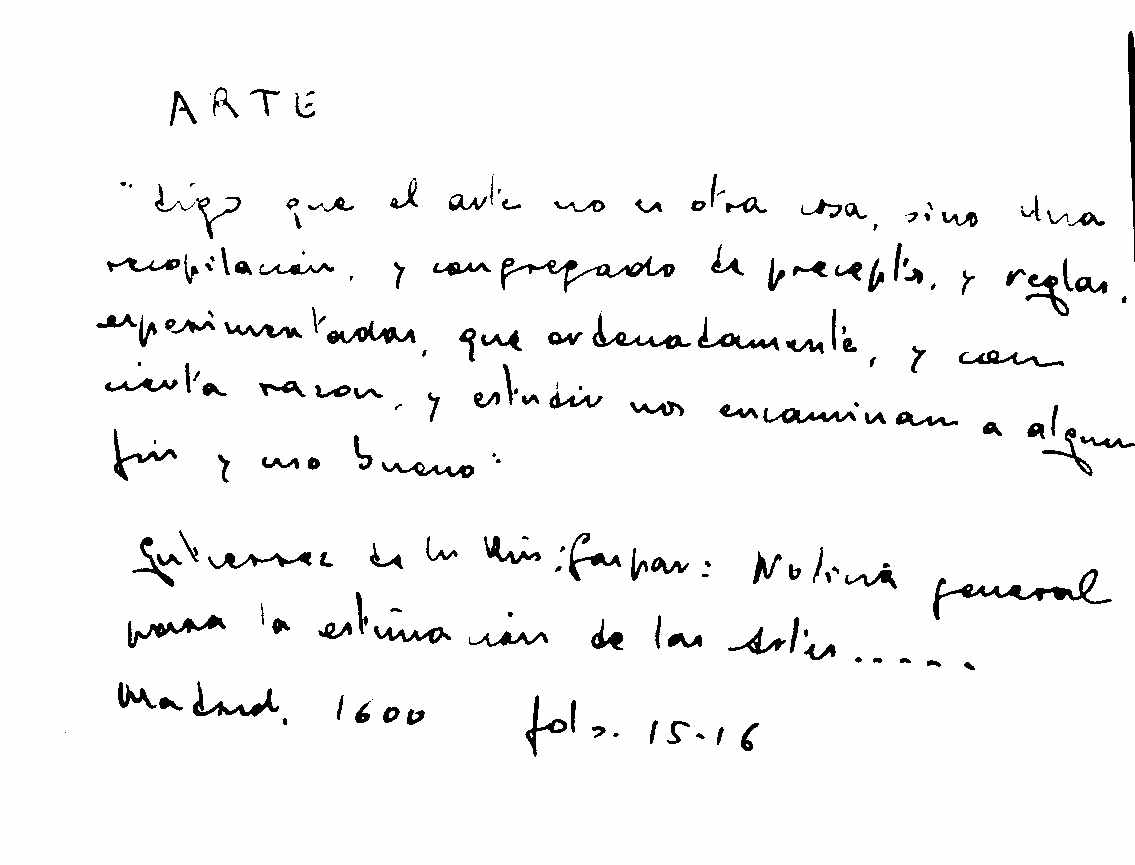 ARTE
"digo que el arte no es otra cosa, sino una
recopilación, y congregado de preceptos, y reglas,
experimentadas, que ordenadamente, y con
cierta razon, y estudio nos encaminan a algun
fin y uso bueno"
Gutierrez de los Rios: Gaspar: Noticia general
para la estimación de las Artes.....
Madrid, 1600 fols. 15-16